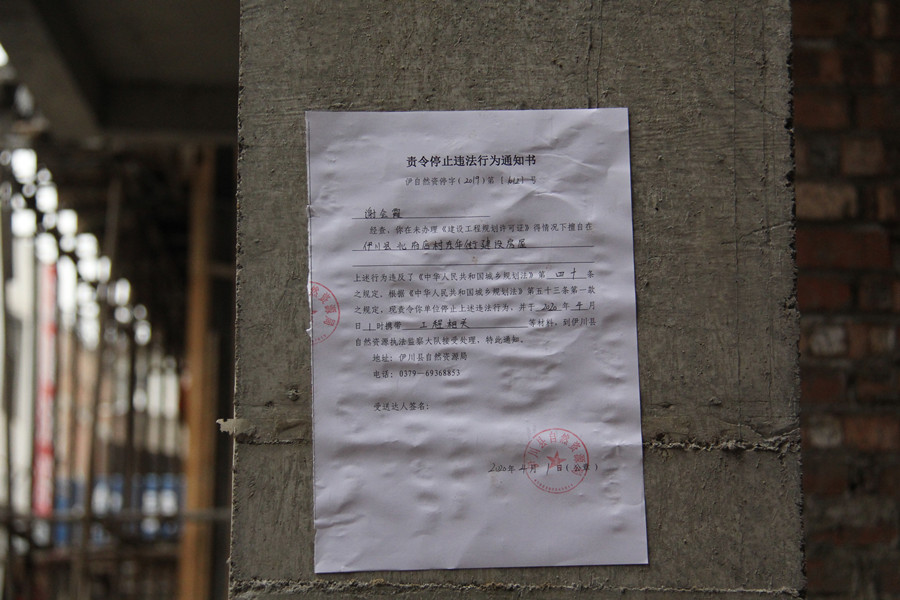 责令停止违法行为通知书
伊自然资停字(2019)第 号
谢会霞
经查,你在未办理《建设工程规划许可证》得情况下擅自在
伊川县 村 建设房屋
上述行为违反了《中华人民共和国城乡规划法》第 四十 条
之规定。根据《中华人民共和国城乡规划法》第五十三条第一款
之规定,现责令你单位停止上述违法行为,并于 2020 年 4 月
日 1 时携带 工程相关 等材料,到伊川县
自然资源执法监察大队接受处理,特此通知。
地址:伊川县自然资源局
电话:0379—69368853
受送达人签名:
伊川县自然资源局
2020年 4 月 1 日(公章)